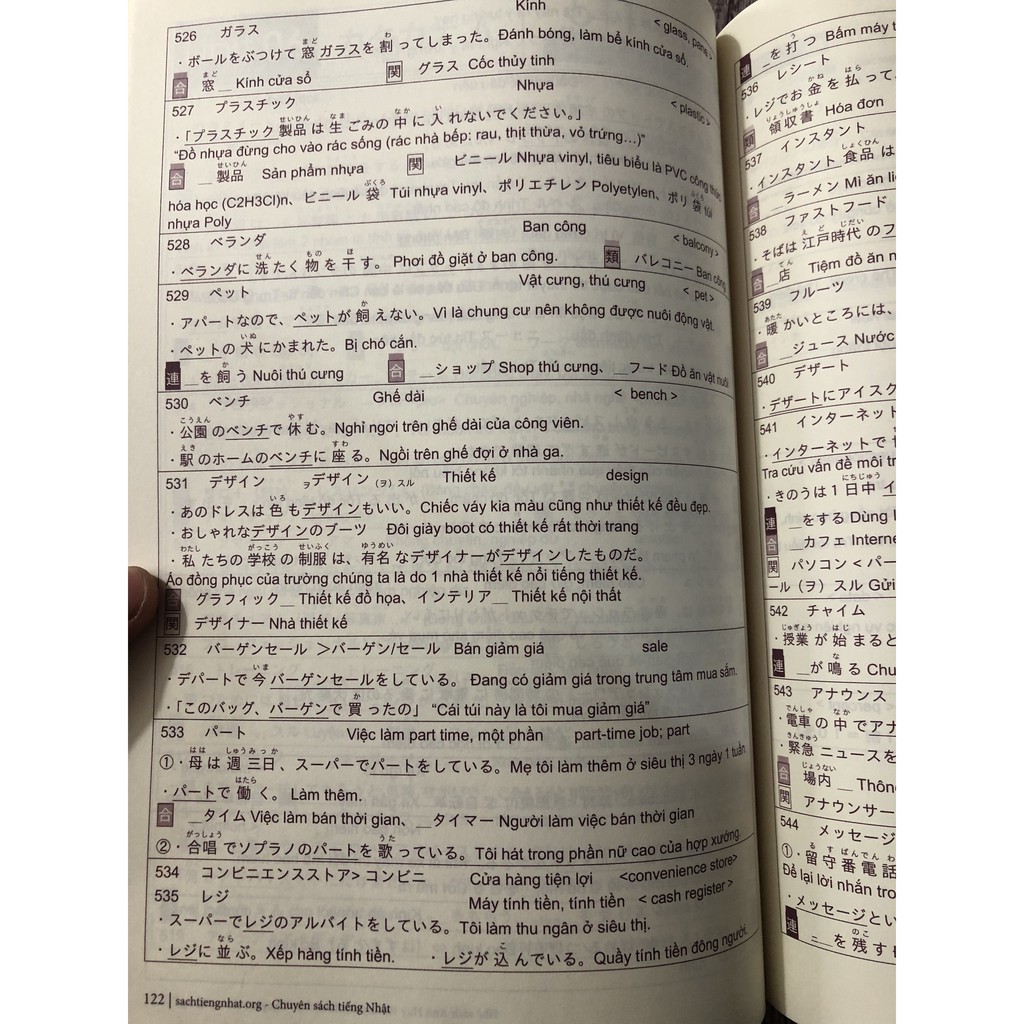 Kính
526 ガラス < glass, pane >
・ボールをぶつけて窓ガラスを割ってしまった。Đánh bóng, làm bể kính cửa sổ.
合 窓__ Kính cửa sổ 関 グラス Cốc thủy tinh
Nhựa
527 プラスチック < plastic >
・「プラスチック製品は生ごみの中に入れないでください。」
“Đồ nhựa đừng cho vào rác sống (rác nhà bếp: rau, thịt thừa, vỏ trứng…)”
合 __製品 Sản phẩm nhựa 関 ビニール Nhựa vinyl, tiêu biểu là PVC công thức
hóa học (C2H3Cl)n、ビニール袋 Túi nhựa vinyl、ポリエチレン Polyetylen、ポリ袋 túi
nhựa Poly
528 ベランダ Ban công < balcony >
・ベランダに洗たく物を干す。Phơi đồ giặt ở ban công. 類 バレコニー Ban công
529 ペット Vật cưng, thú cưng < pet >
・アパートなので、ペットが飼えない。Vì là chung cư nên không được nuôi động vật.
・ペットの犬にかまれた。Bị chó cắn.
連 __を飼う Nuôi thú cưng 合 __ショップ Shop thú cưng、__フード Đồ ăn vật nuôi
530 ベンチ Ghế dài < bench >
・公園のベンチで休む。Nghỉ ngơi trên ghế dài của công viên.
・駅のホームのベンチに座る。Ngồi trên ghế đợi ở nhà ga.
531 デザイン ヲデザイン(ヲ)スル Thiết kế design
・あのドレスは色もデザインもいい。Chiếc váy kia màu cũng như thiết kế đều đẹp.
・おしゃれなデザインのブーツ Đôi giày boot có thiết kế rất thời trang
・私たちの学校の制服は、有名なデザイナーがデザインしたものだ。
Áo đồng phục của trường chúng ta là do 1 nhà thiết kế nổi tiếng thiết kế.
合 グラフィック__ Thiết kế đồ họa、インテリア__ Thiết kế nội thất
関 デザイナー Nhà thiết kế
532 バーゲンセール >バーゲン/セール Bán giảm giá sale
・デパートで今バーゲンセールをしている。Đang có giảm giá trong trung tâm mua sắm.
・「このバッグ、バーゲンで買ったの」 “Cái túi này là tôi mua giảm giá”
533 パート Việc làm part time, một phần part-time job; part
①・母は週三日、スーパーでパートをしている。Mẹ tôi làm thêm ở siêu thị 3 ngày 1 tuần.
・パートで働く。Làm thêm.
合 __タイム Việc làm bán thời gian、__タイマー Người làm việc bán thời gian
②・合唱でソプラノのパートを歌っている。Tôi hát trong phần nữ cao của hợp xướng.
534 コンビニエンスストア> コンビニ Cửa hàng tiện lợi <convenience store>
535 レジ Máy tính tiền, tính tiền < cash register >
・スーパーでレジのアルバイトをしている。Tôi làm thu ngân ở siêu thị.
・レジに並ぶ。Xếp hàng tính tiền. ・レジが込んでいる。Quầy tính tiền đông người.
122 | sachtiengnhat.org - Chuyên sách tiếng Nhật
連 __を打つ Bấm máy t
536 レシート
・レジでお金を払って
類 領収書 Hóa đơn
537 インスタント
・インスタント食品は
合 ラーメン Mì ăn liề
538 ファストフード
・そばは江戸時代のフ
合 __店 Tiệm đồ ăn n
539 フルーツ
・暖かいところには、
合 __ジュース Nước
540 デザート
・デザートにアイスク
541 インターネット
・インターネットで
Tra cứu vấn đề môi tr
・きのうは1日中イ
連 __をする Dùng I
合 __カフェ Interne
関 パソコン < パー
ール(ヲ)スル Gửi
542 チャイム
・授業が始まると
連 __が鳴る Chu
543 アナウンス
・電車の中でアナ
・緊急ニュースを
合 場内__ Thôn
関 アナウンサー
544 メッセージ
①・留守番電話
Để lại lời nhắn tro
・メッセージとい
連 __を残す